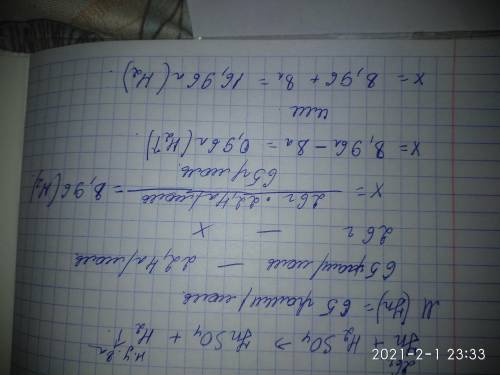 26г н.у. 8л
Zn + H₂SO₄ → ZnSO₄ + H₂↑
M(Zn) = 65 грамм/моль
65 грамм/моль — 22,4 л/моль
26 г — x
x = 26 г · 22,4 л/моль / 65 г/моль = 8,96 (H₂)
x = 8,96л - 8л = 0,96л (H₂↑)
или
x = 8,96 + 8л = 16,96л (H₂)
2021-2-1 23:33